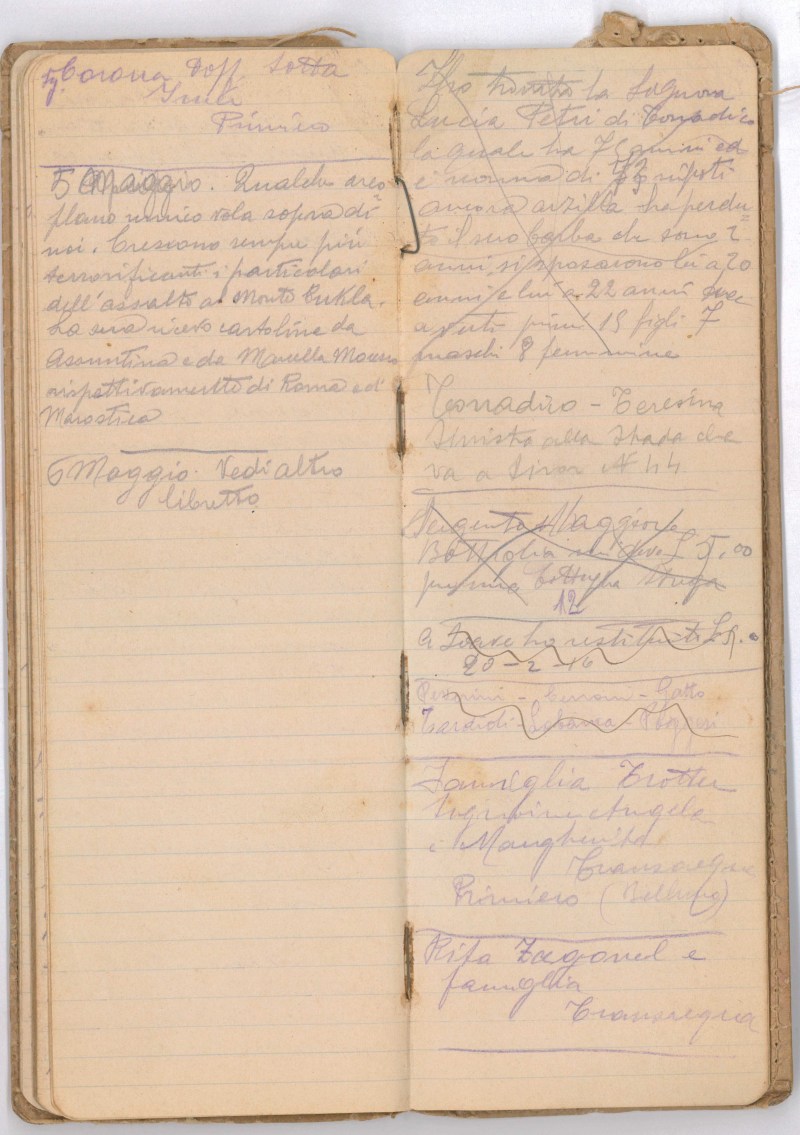 Corona Dott. Sotta
Imèr
Primiero
5 Maggio. Qualche areo
plano nimico vola sopra di
noi. Crescono sempre più
terrorificanti i particolari
dell'assalto a Monte Cukla.
La sera ricevo cartoline da
Assuntina e da Marcella Moreno
rispettivamente di Roma e di
Marostica
6 Maggio. Vedi altro
libretto
la Signora
Lucia Petri di Tonadico
la quale ha 75 anni ed
è nonna di nipoti
ancora arzilla ha perdu
to il suo che sono 2
anni si sposarono lei a 20
anni e lui a 22 anni
avuti 15 figli 7
maschi 8 femmine
Tonadico - Teresina
Sinistra alla strada che
va a Siror N 44
Sergente Maggiore
Bottiglia mi deve £ 5,00
per una
12
A Soave ho restituito £ 5.
20-2-16
Gatto
Famiglia Trotter
Angela
e Margherita
Transacqua
Primiero (Belluno)
Rita Zagonel e
famiglia
Transacqua